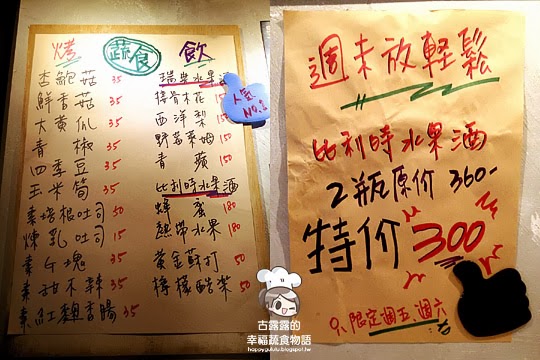 烤 蔬食
杏鮑菇 35
鮮香菇 35
大黃瓜 35
青椒 35
四季豆 35
玉米筍 35
素培根吐司 50
煉乳吐司 15
素G塊 35
素甜不辣 35
素紅麴香腸 35
飲
瑞典水果酒
接骨木花 150
西洋梨 150
野莓萊姆 150
青蘋 150
比利時水果酒
蜂蜜 180
熱帶水果 180
黃金蘇打 50
檸檬醋茶 50
人氣
NO.1
週末放輕鬆
比利時水果酒
2瓶原价 360-
特价300
限定週五.週六
古露露的
幸福蔬食物語
happygululu.blogspot.tw